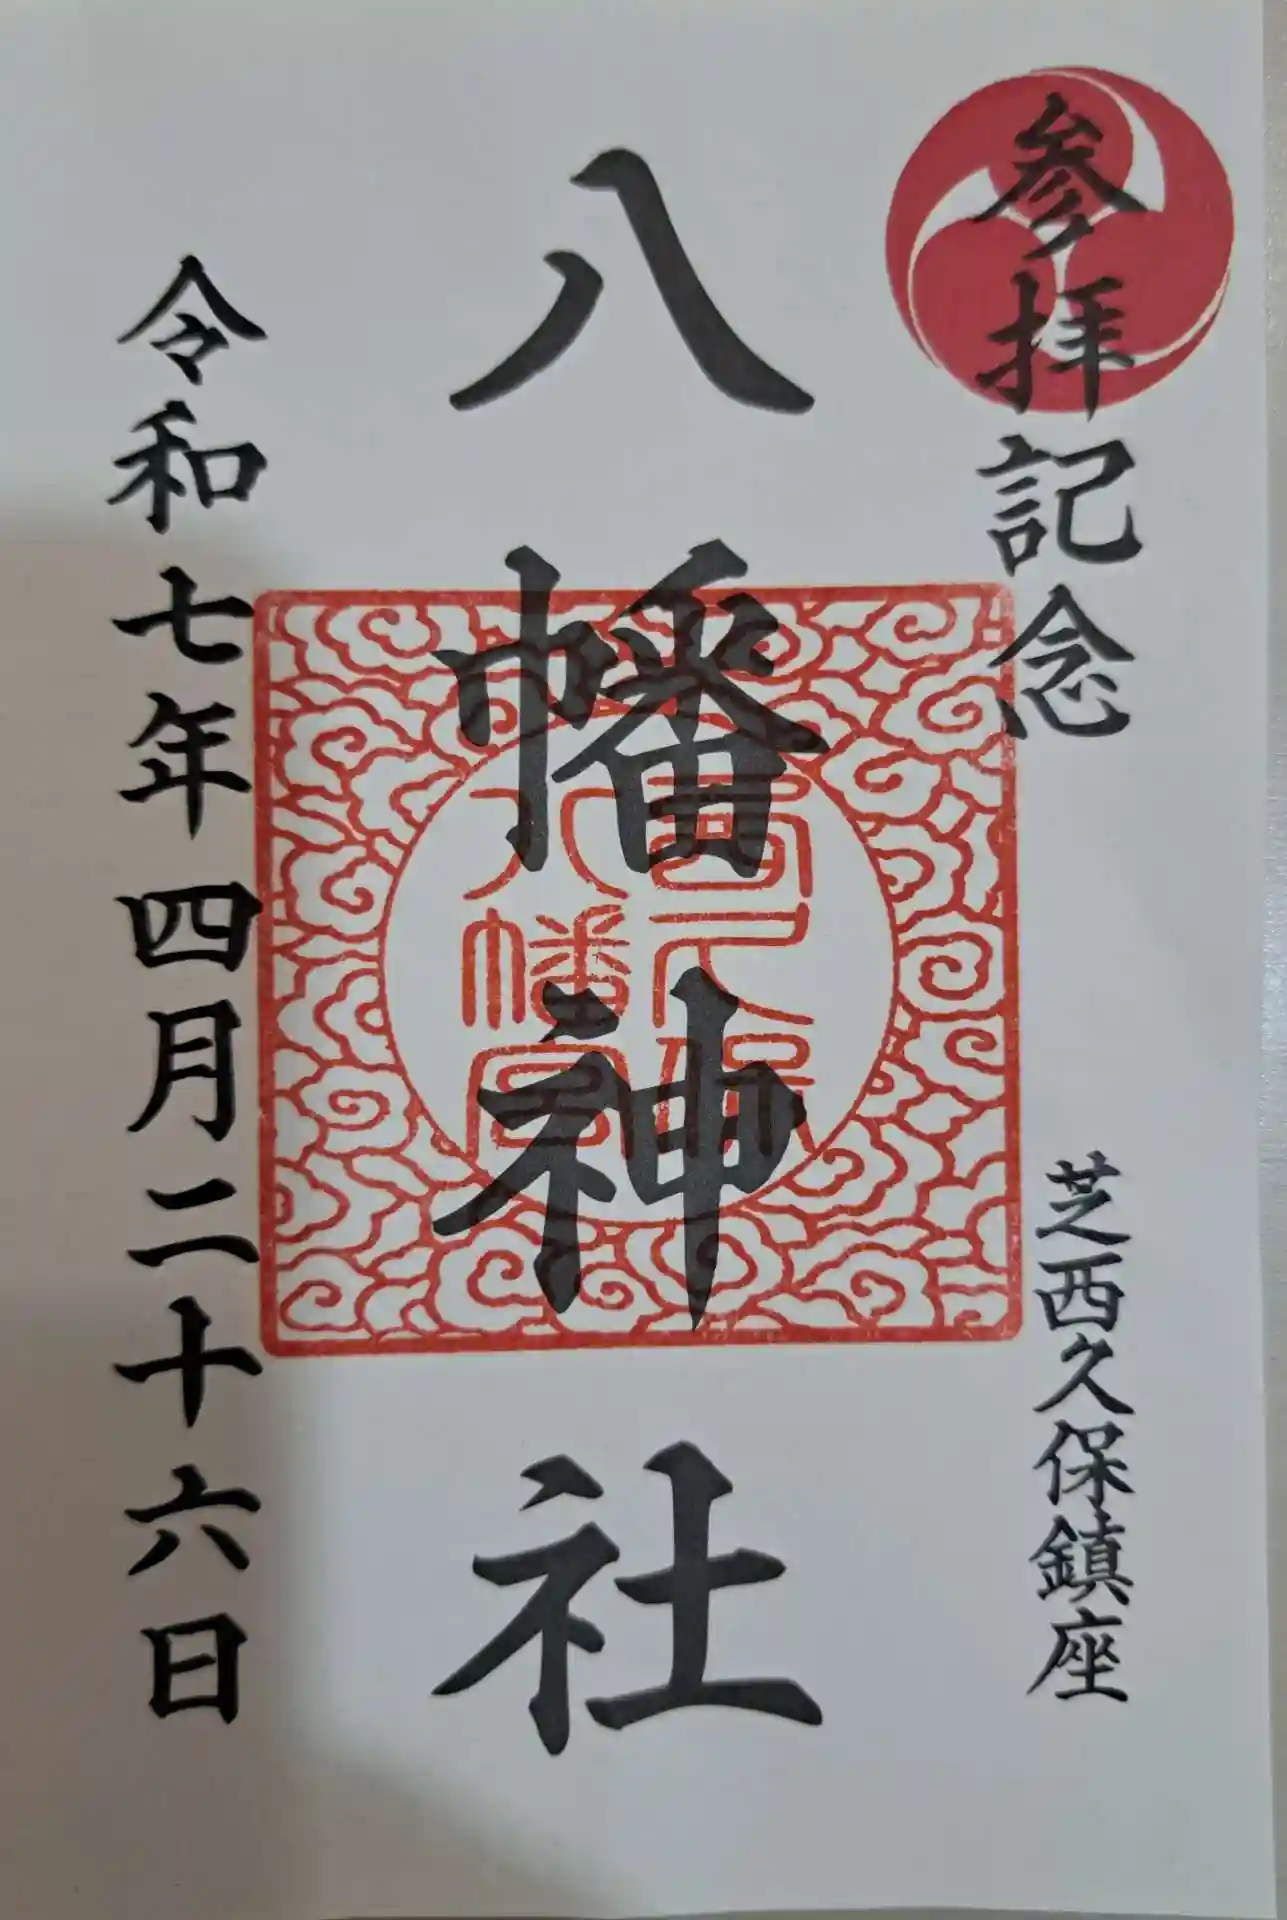 参拝記念
芝西久保鎮座
八幡神社
西久保
八幡宮
令和七年四月二十六日